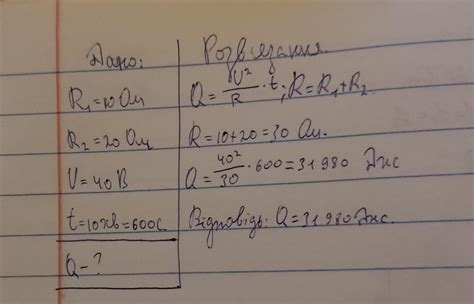 Дано:
R₁=10 Ом
R₂=20 Ом
U=40 В
t=10хв=600с
Q-?
Розв'язання
Q = U²/R · t; R=R₁+R₂.
R=10+20=30 Ом.
Q = 40²/30 · 600=31980 Дж
Відповідь: Q=31980 Дж.